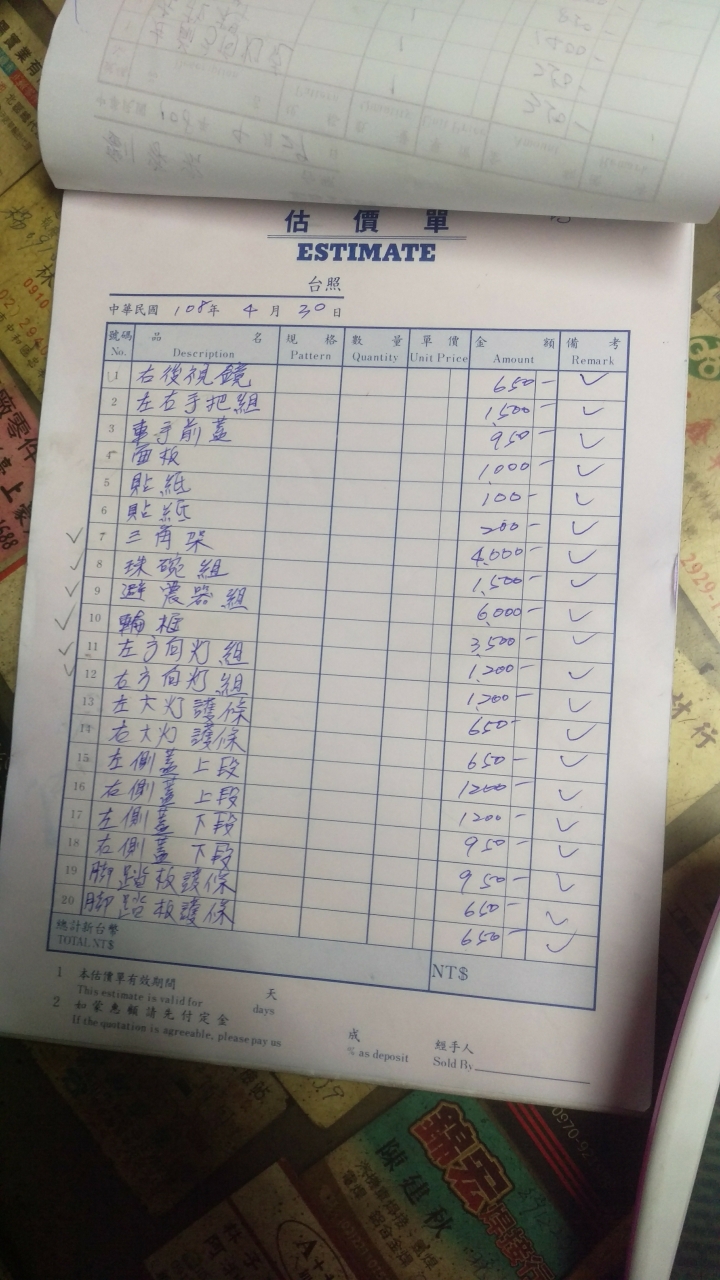 估價單
ESTIMATE
台照
中華民國 108年 4月 30日
號碼 No. 品名 Description 規格 Pattern 數量 Quantity 單價 Unit Price 金額 Amount 備考 Remark
1 右後視鏡 650-
2 左右手把組 1,500-
3 車手前蓋 950-
4 面板 1,000-
5 貼紙 100-
6 貼紙 200-
7 三角架 4,000-
8 珠碗組 1,500-
9 避震器組 6,000-
10 輪框 3,500-
11 左方向灯組 1,200-
12 右方向灯組 1,200-
13 左大灯護條 650-
14 右大灯護條 650-
15 左側蓋上段 1200-
16 右側蓋上段 1200-
17 左側蓋下段 950-
18 右側蓋下段 950-
19 腳踏板護條 650-
20 腳踏板護條 650-
總計新台幣 TOTAL NT$ NT$
1 本估價單有效期間 天
This estimate is valid for days
2 如蒙惠顧請先付定金 成 經手人
If the quotation is agreeable, please pay us % as deposit Sold By
錦宏
陳建秋
0970-92
2929-1
材行